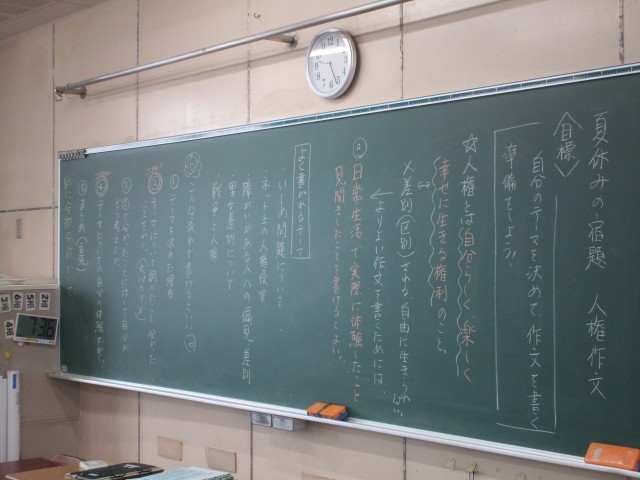 夏休みの宿題 人権作文
〈目標〉
自分のテーマを決めて 作文を書く
準備をしよう。
☆人権とは自分らしく楽しく
幸せに生きる権利のこと。
×差別(区別)
自由に生きられ
ない。
よりよい作文を書くためには、
◎日常生活で実際に体験したこと
見聞きしたことを書けるとよい。
よく書かれるテーマ
・いじめ問題について
・ネット上の人権侵害
・障がいがある人への偏見、差別
・男女差別について
・戦争と人権
こんな流れで書けるとよい
①テーマを決めた理由
②テーマについて調べたこと
③
④テーマについての自分の体験
⑤まとめ
736